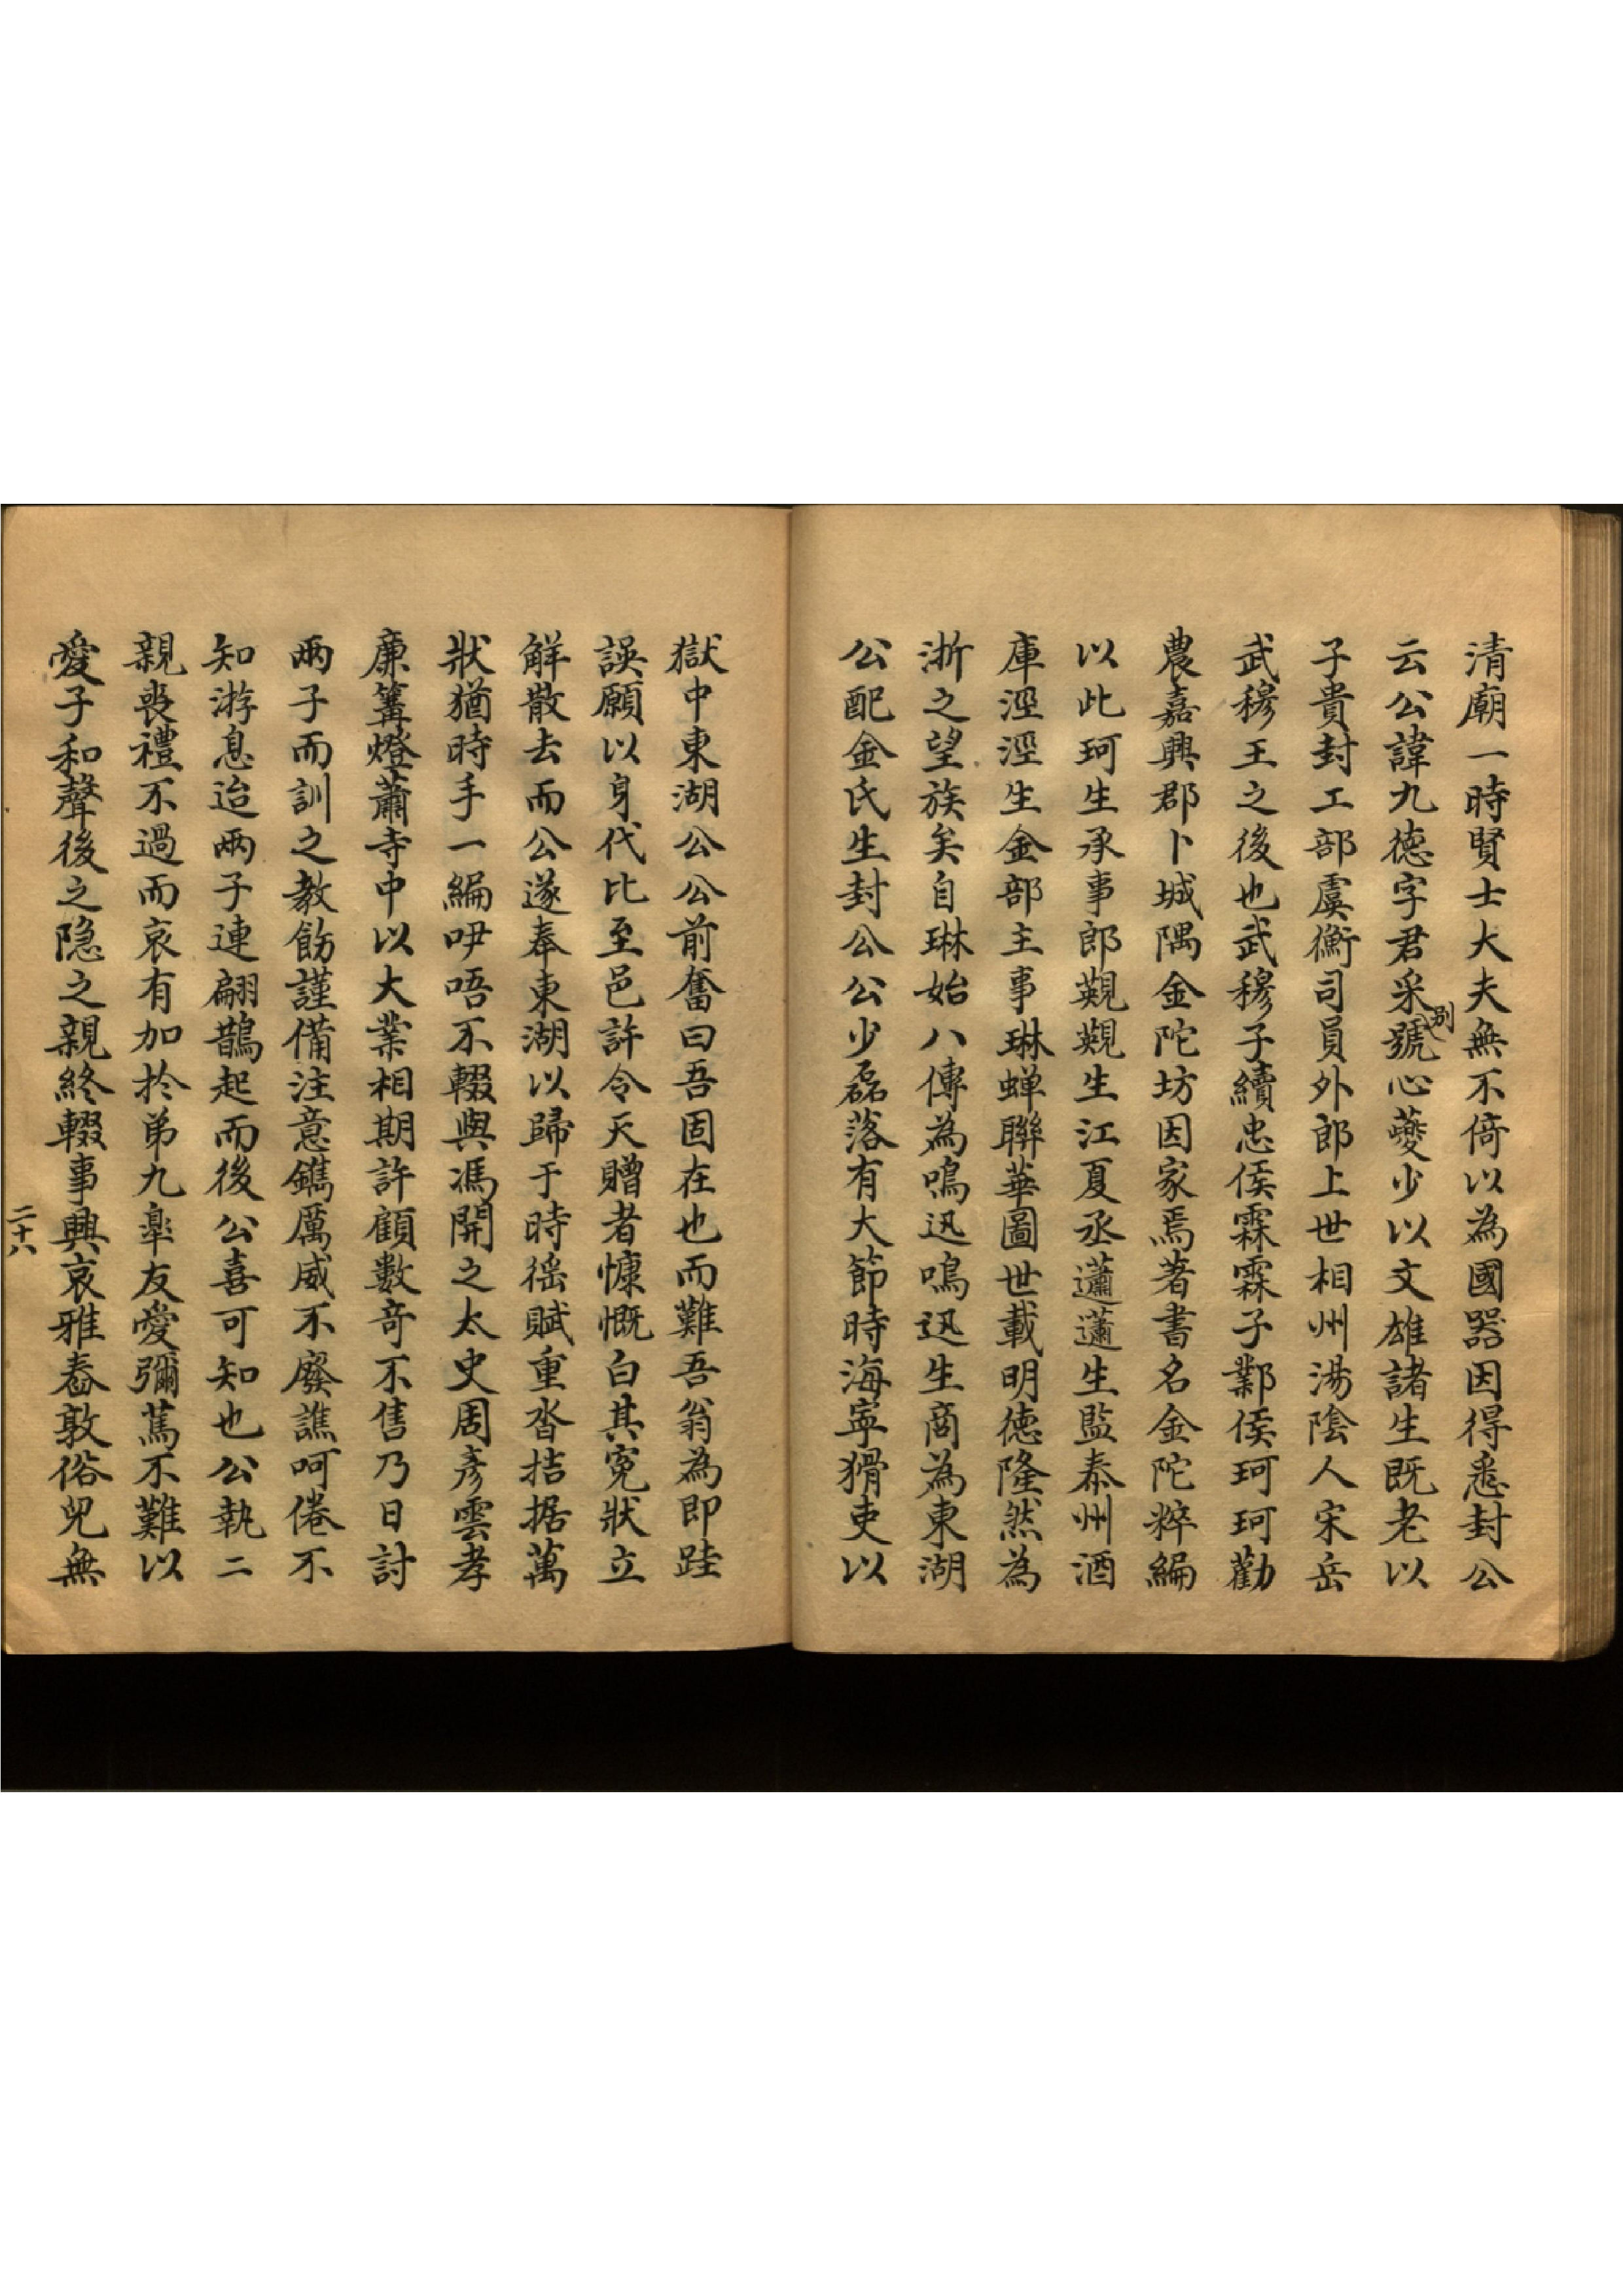 清廟一時賢士大夫無不倚以為國器因得悉封公
云公諱九德字君采別號心蘷少以文雄諸生既老以
子貴封工部虞衡司員外郎上世相州湯陰人宋岳
武穆王之後也武穆子續忠侯霖霖子鄴侯珂珂勸
農嘉興郡卜城隅金陀坊因家焉著書名金陀粹編
以此珂生承事郎覲覲生江夏丞薖薖生監泰州酒
庫淫淫生金部主事琳蟬聯華圖世載明德隆然為
浙之望族矣自琳始八傳為鳴迅鳴迅生商為東湖
公配金氏生封公公少磊落有大節時海寧猾吏以
獄中東湖公公前奮曰吾固在也而難吾翁為即跬
誤願以身代比至邑許令天贈者慷慨白其冤狀立
解散去而公遂奉東湖以歸于時徭賦重沓拮据萬
狀猶時手一編吚唔不輟與馮開之太史周彥雲孝
廉篝燈蕭寺中以大業相期許顧數奇不售乃日討
兩子而訓之教飭謹備注意鐫厲威不廢譙呵倦不
知游息迨兩子連翩鵲起而後公喜可知也公執二
親喪禮不過而哀有加於弟九皋友愛彌篤不難以
愛子和聲後之隐之親終輟事興哀雅憃敦俗兒無
二十八